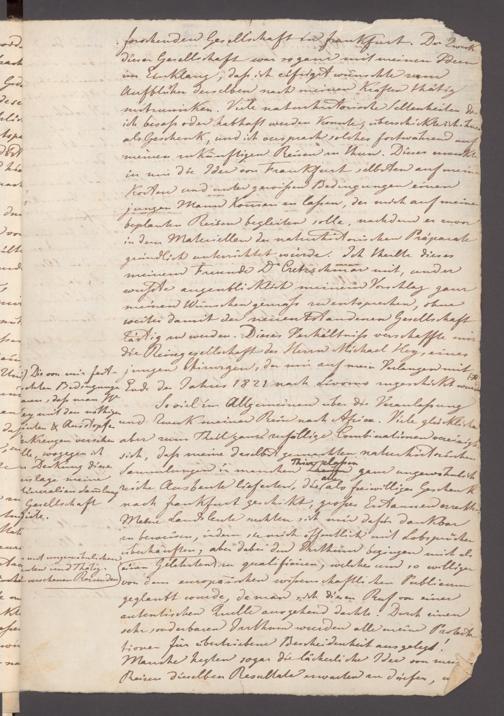 forschenden Gesellschaft in Frankfurt. Der Zweck
dieser Gesellschaft war so ganz mit meinen Ideen
im Einklang, daſs ich eifrigst wünschte zum
Aufblühen derselben nach meinen Kräften thätig
mitzuwirken. Viele naturhistorische Seltenheiten die
ich besaſs oder habhaft werden konnte, überschickte ich ihnen
als Geschenk, und ich versprach solches fortwährend auf
meinen zukünftigen Reisen zu thun. Dieses erweckte
in mir die Idee von Frankfurt selbsten auf meine
Kosten und unter gewiſsen Bedingungen einen
jungen Mann kommen zu laſsen, der mich auf meine
beplanten Reisen begleiten solle, nachdem er zuvor
in dem Materiellen der naturhistorischen Präparate
gründlich unterrichtet worden. Ich theilte dieses
meinem Freunde Dr Cretzschmar mit, und er
wuſste augenblicklich meinem Vorschlag ganz
meinen Wünschen gemäſs zu entsprechen, ohne
weiter damit der neuentstandenen Gesellschaft
lästig zu werden. Dieses Verhältniſs verschaffte mir
die Reisegesellschaft des Herrn Michael Hey, eines
jungen Chirurgen, der mir auf mein Verlangen mit
Ende des Jahres 1821 nach Livorno zugeschickt wurde
Die von mir
Bedingungen
waren, daſs man H
Hey mit den nöthigen
& Ausstopf-
werkzeugen versehen
solle, wogegen ich
zur Deckung dieser
Auslage meine
Mineraliensammlung
der Gesellschaft

Soviel im Allgemeinen über die Veranlaſsung
und Zweck meiner Reise nach Africa. Viele glückliche
aber zum Theil ganz zufällige Combinationen vereinigten
sich, daſs meine daselbst gemachten naturhistorischen
Sammlungen in manchen Thierklaſsen eine ganz ungewöhnlich
reiche Ausbeute lieferten, die, als freiwillige Geschenke
nach Frankfurt geschickt, groſses Erstaunen erregte.
Meine Landsleute suchten sich mir dafür dankbar
zu beweisen, indem sie mich öffentlich mit Lobsprüchen
überhäuften, aber dabei den Irrthum begingen mich als
einen Gelehrten zu qualifiziren, welches um so williger
von dem europäischen wiſsenschaftlichen Publicum
geglaubt wurde, da man sich diesen Ruf von einer
autentischen Quelle ausgehend dachte. Durch einen
sehr sonderbaren Irrthum wurden alle meine Protesta-
tionen für übertriebene Bescheidenheit ausgelegt!
Manche hegten sogar die lächerliche Idee von meinen
Reisen dieselben Resultate erwarten zu dürfen,
mit ungewöhnlichen
und Thätig-
Reisenden